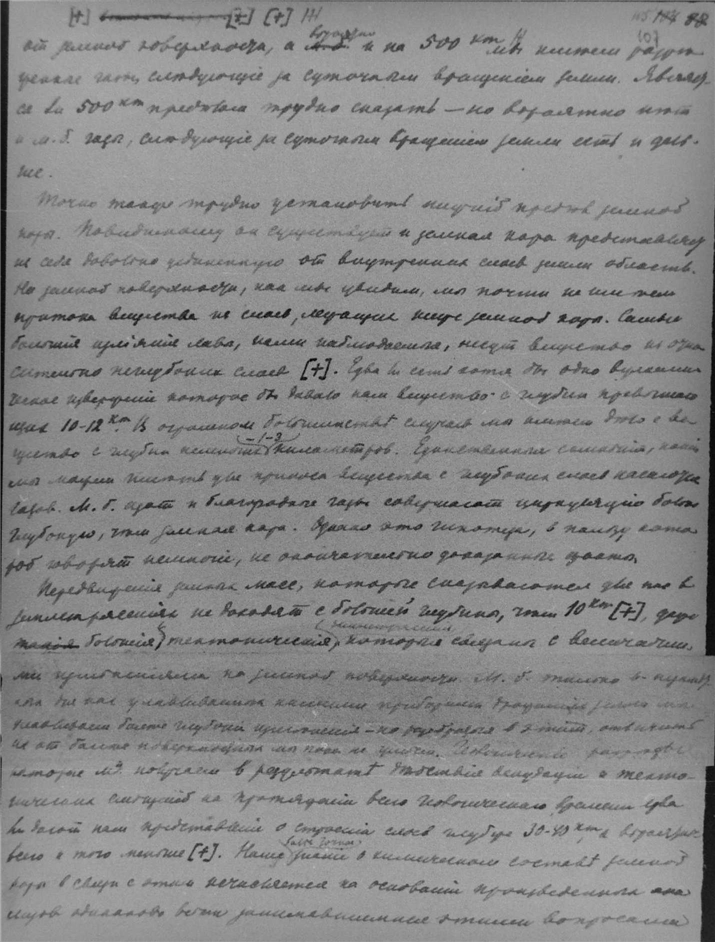 [+] [+] [+]
от земной поверхности, а и на 500 km мы имеем
газы, следующие за суточным вращением земли.
ся ли 500 km пределом трудно сказать – но вероятно нет
и м.б. газы, следующие за суточным вращением земли есть и даль-
ше.
Точно также трудно установить нижний предел земной
коры. Повидимому он существует и земная кора представляет
из себя довольно уединенную от внутренних слоев земли область.
На земной поверхности, как мы увидим, мы почти не имеем
притока вещества из слоев, лежащих ниже земной коры. Самые
большия излияния лавы, нами наблюдаемыя, несут вещество из отно
сительно неглубоких слоев [+]. Едва ли есть хотя бы одно вулкани-
ческое извержение которое бы давало нам вещество с глубин превышаю
щих 10-12 km. В огромном большинстве случаев мы имеем дело с ве-
ществом с глубин немногих километров. Единственным
мы можем иметь для приноса вещества с глубоких слоев
газов. М.б. азот и благородные газы совершают циркуляцию более
глубокую, чем земная кора. Однако это гипотеза, в пользу кото
рой говорят немногие, не окончательно доказанные факты.
Передвижения земных масс, которые сказываются для нас в
землетрясениях не доходят с большей глубины, чем 10 km [+],
большия, тектоническия, которые связаны с величайши-
ми на земной поверхности. М.б. только в
для нас улавливаемых нашими приборами земли мы
улавливаем более глубокия – но в этом, отличить
их от более поверхностных мы пока не умеем.
которые м.б. получаем в результате действия денудации и текто-
нических смещений на протяжении всего геологического времени едва
ли дают нам представление о строении слоев глубже 30-40 km, а вероятнее
всего и того меньше [+]. Наше знание о химическом составе земной
коры в связи с этим исчисляется на основании произведенных ана
лизов одинаково всеми занимавшимися этими вопросами